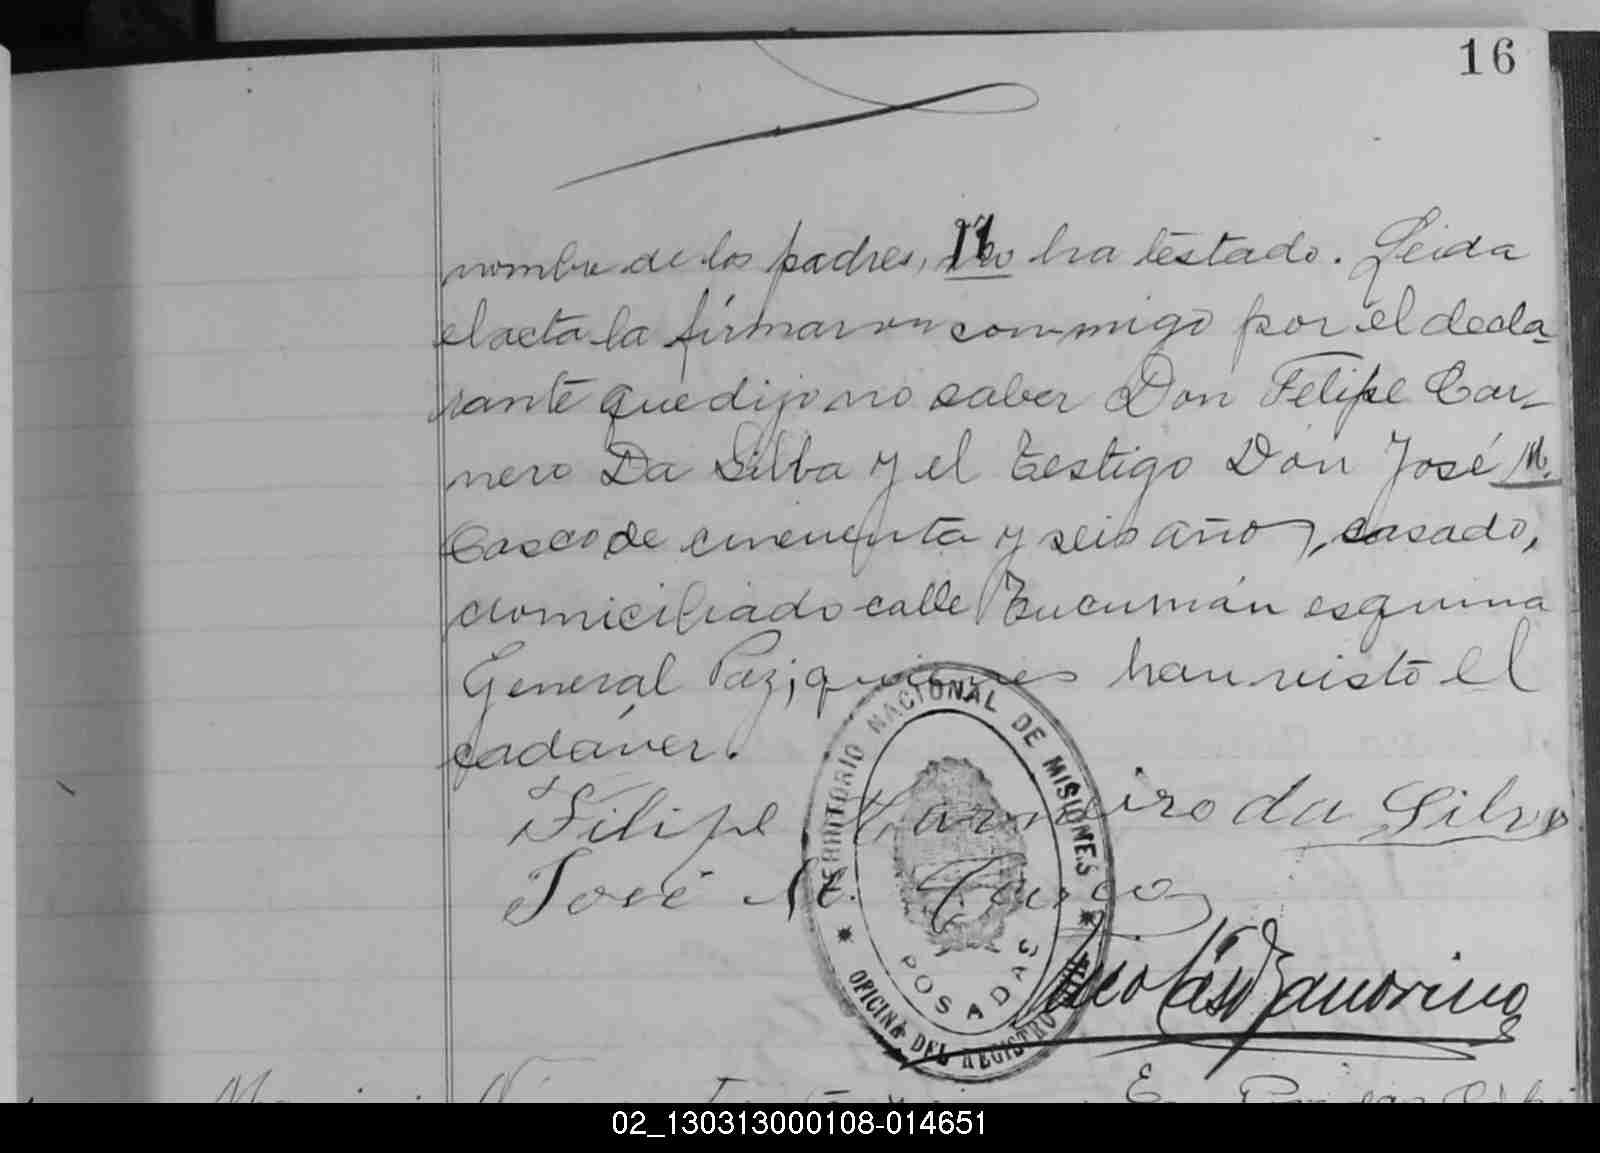 16
nombre de los padres, No ha testado. Leida
el acta la firmaron conmigo por el decla-
rante que dijo no saber Don Felipe Car-
nero Da Silba y el testigo Don José M.
Casco de cincuenta y seis años, casado,
domiciliado calle Tucumán esquina
General Paz, quienes han visto el
cadáver.
Filipe Carneiro da Silva
José M. Casco
TERRITORIO NACIONAL DE MISIONES
POSADAS
OFICINA DEL REGISTRO CIVIL
Nicolás
02_130313000108-014651